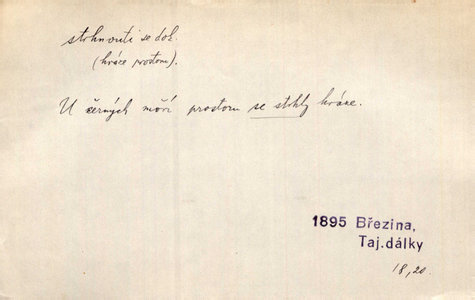 strhnouti se dok.
(hráze prostoru).
U černých moří prostoru se strhly hráze.
1895 Březina,
Taj.dálky
18,20